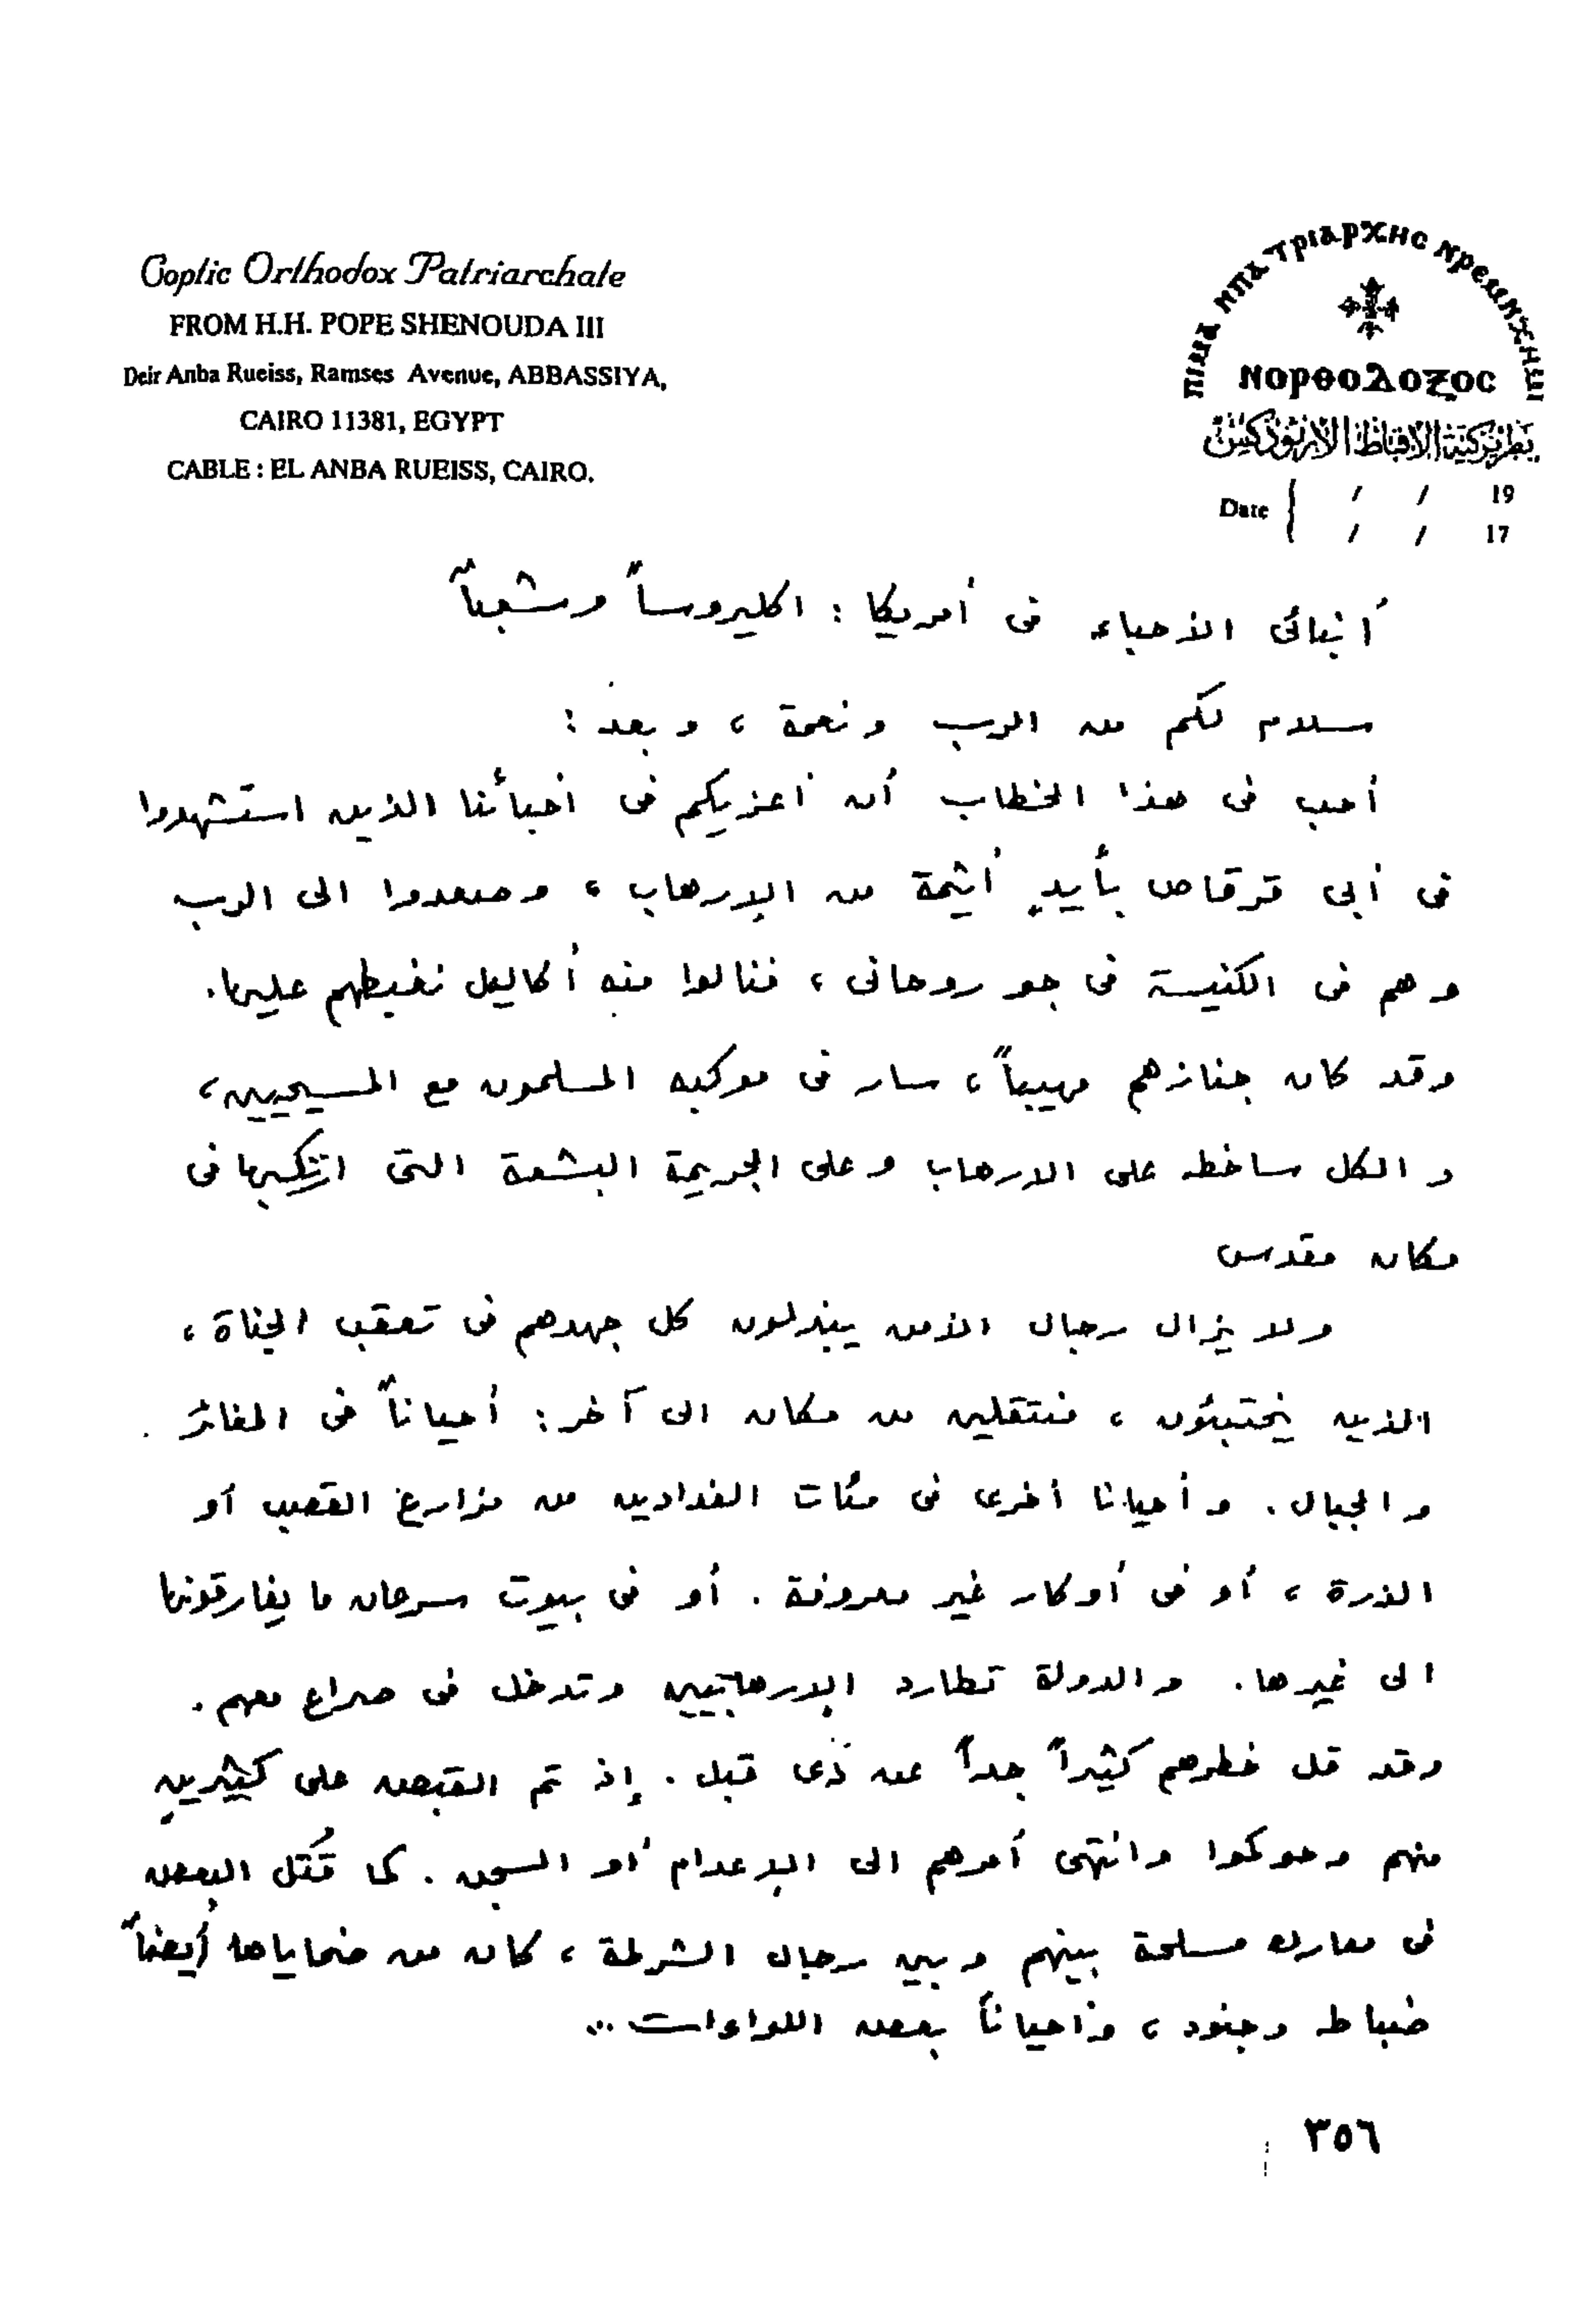 Coptic Orthodox Patriarchate
FROM H.H. POPE SHENOUDA III
Deir Anba Rueiss, Ramses Avenue, ABBASSIYA,
CAIRO 11381, EGYPT
CABLE : EL ANBA RUEISS, CAIRO.
ⲛⲟⲣⲑⲟⲇⲟⲝⲟⲥ
بطريركية الأقباط الأرثوذكس
Date / / 19
/ / 17
أبنائى الأحباء فى أمريكا : اكليروساً وشعباً
سلام لكم من الرب ونعمة ، وبعد :
أحب فى هذا الخطاب أن أعزيكم فى أحبائنا الذين استشهدوا
فى أبى قرقاص بأيدٍ أثيمة من الإرهاب ، وصعدوا الى الرب
وهم فى الكنيسة فى جو روحانى ، فنالوا منه أكاليل نغبطهم عليها.
وقد كان جنازهم مهيباً ، سار فى موكبه المسلمون مع المسيحيين ،
والكل ساخط على الارهاب وعلى الجريمة البشعة التى ارتكبها فى
مكان مقدس
ولا يزال رجال الأمن يبذلون كل جهدهم فى تعقب الجناة ،
الذين يختبئون ، منتقلين من مكان الى آخر : أحياناً فى المغائر
والجبال . وأحيانا أخرى فى مئات الفدادين من مزارع القصب أو
الذرة ، أو فى أوكار غير معروفة . أو فى بيوت سرعان ما يفارقونها
الى غيرها . والدولة تطارد الإرهابيين وتدخل فى صراع معهم .
وقد قل خطرهم كثيراً جداً عن ذى قبل . إذ تم القبض على كثيرين
منهم وحوكموا وانتهى أمرهم الى الإعدام أو السجن . كما قُتل البعض
فى معارك مسلحة بينهم وبين رجال الشرطة ، كان من ضحاياها أيضاً
ضباط وجنود ، وأحياناً بعض اللواءات ...
٣٥٦